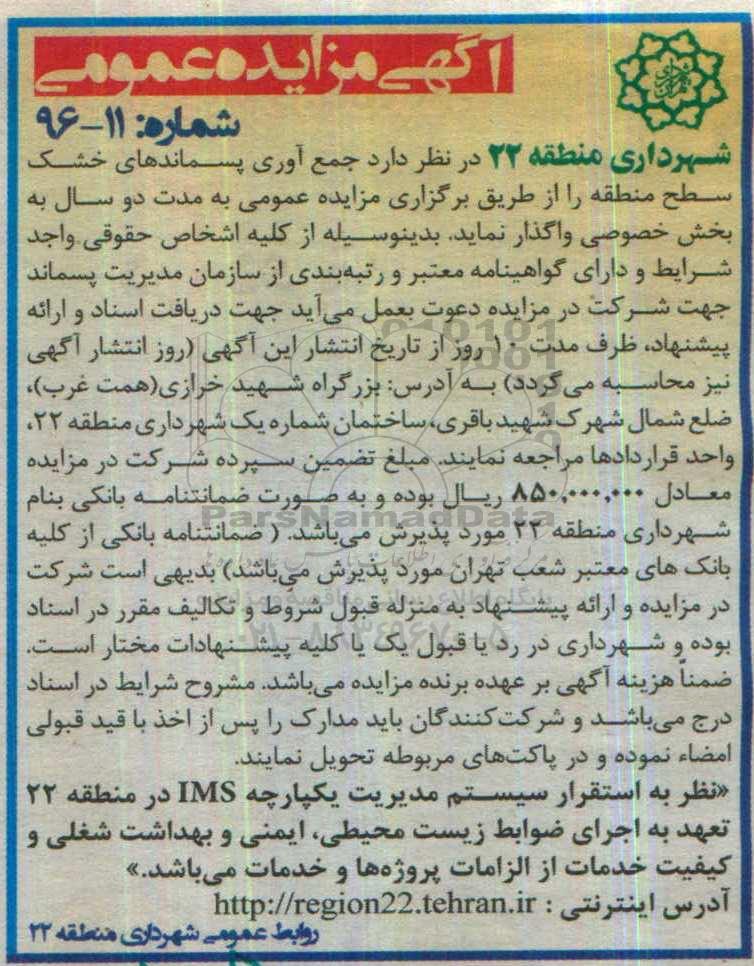 آگهی مزایده عمومی
شماره: ۱۱-۹۶
شهرداری منطقه ۲۲ در نظر دارد جمع آوری پسماندهای خشک
سطح منطقه را از طریق برگزاری مزایده عمومی به مدت دو سال به
بخش خصوصی واگذار نماید. بدینوسیله از کلیه اشخاص حقوقی واجد
شرایط و دارای گواهینامه معتبر و رتبه‌بندی از سازمان مدیریت پسماند
جهت شرکت در مزایده دعوت بعمل می‌آید جهت دریافت اسناد و ارائه
پیشنهاد، ظرف مدت ۱۰ روز از تاریخ انتشار این آگهی (روز انتشار آگهی
نیز محاسبه می‌گردد) به آدرس: بزرگراه شهید خرازی(همت غرب)،
ضلع شمال شهرک شهید باقری، ساختمان شماره یک شهرداری منطقه ۲۲،
واحد قراردادها مراجعه نمایند. مبلغ تضمین سپرده شرکت در مزایده
معادل ۸۵۰,۰۰۰,۰۰۰ ریال بوده و به صورت ضمانتنامه بانکی بنام
شهرداری منطقه ۲۲ مورد پذیرش می‌باشد. ( ضمانتنامه بانکی از کلیه
بانک های معتبر شعب تهران مورد پذیرش می‌باشد) بدیهی است شرکت
در مزایده و ارائه پیشنهاد به منزله قبول شروط و تکالیف مقرر در اسناد
بوده و شهرداری در رد یا قبول یک یا کلیه پیشنهادات مختار است.
ضمناً هزینه آگهی بر عهده برنده مزایده می‌باشد. مشروح شرایط در اسناد
درج می‌باشد و شرکت‌کنندگان باید مدارک را پس از اخذ با قید قبولی
امضاء نموده و در پاکت‌های مربوطه تحویل نمایند.
«نظر به استقرار سیستم مدیریت یکپارچه IMS در منطقه ۲۲
تعهد به اجرای ضوابط زیست محیطی، ایمنی و بهداشت شغلی و
کیفیت خدمات از الزامات پروژه‌ها و خدمات می‌باشد.»
آدرس اینترنتی : http://region22.tehran.ir
روابط عمومی شهرداری منطقه ۲۲
ParsNamadData